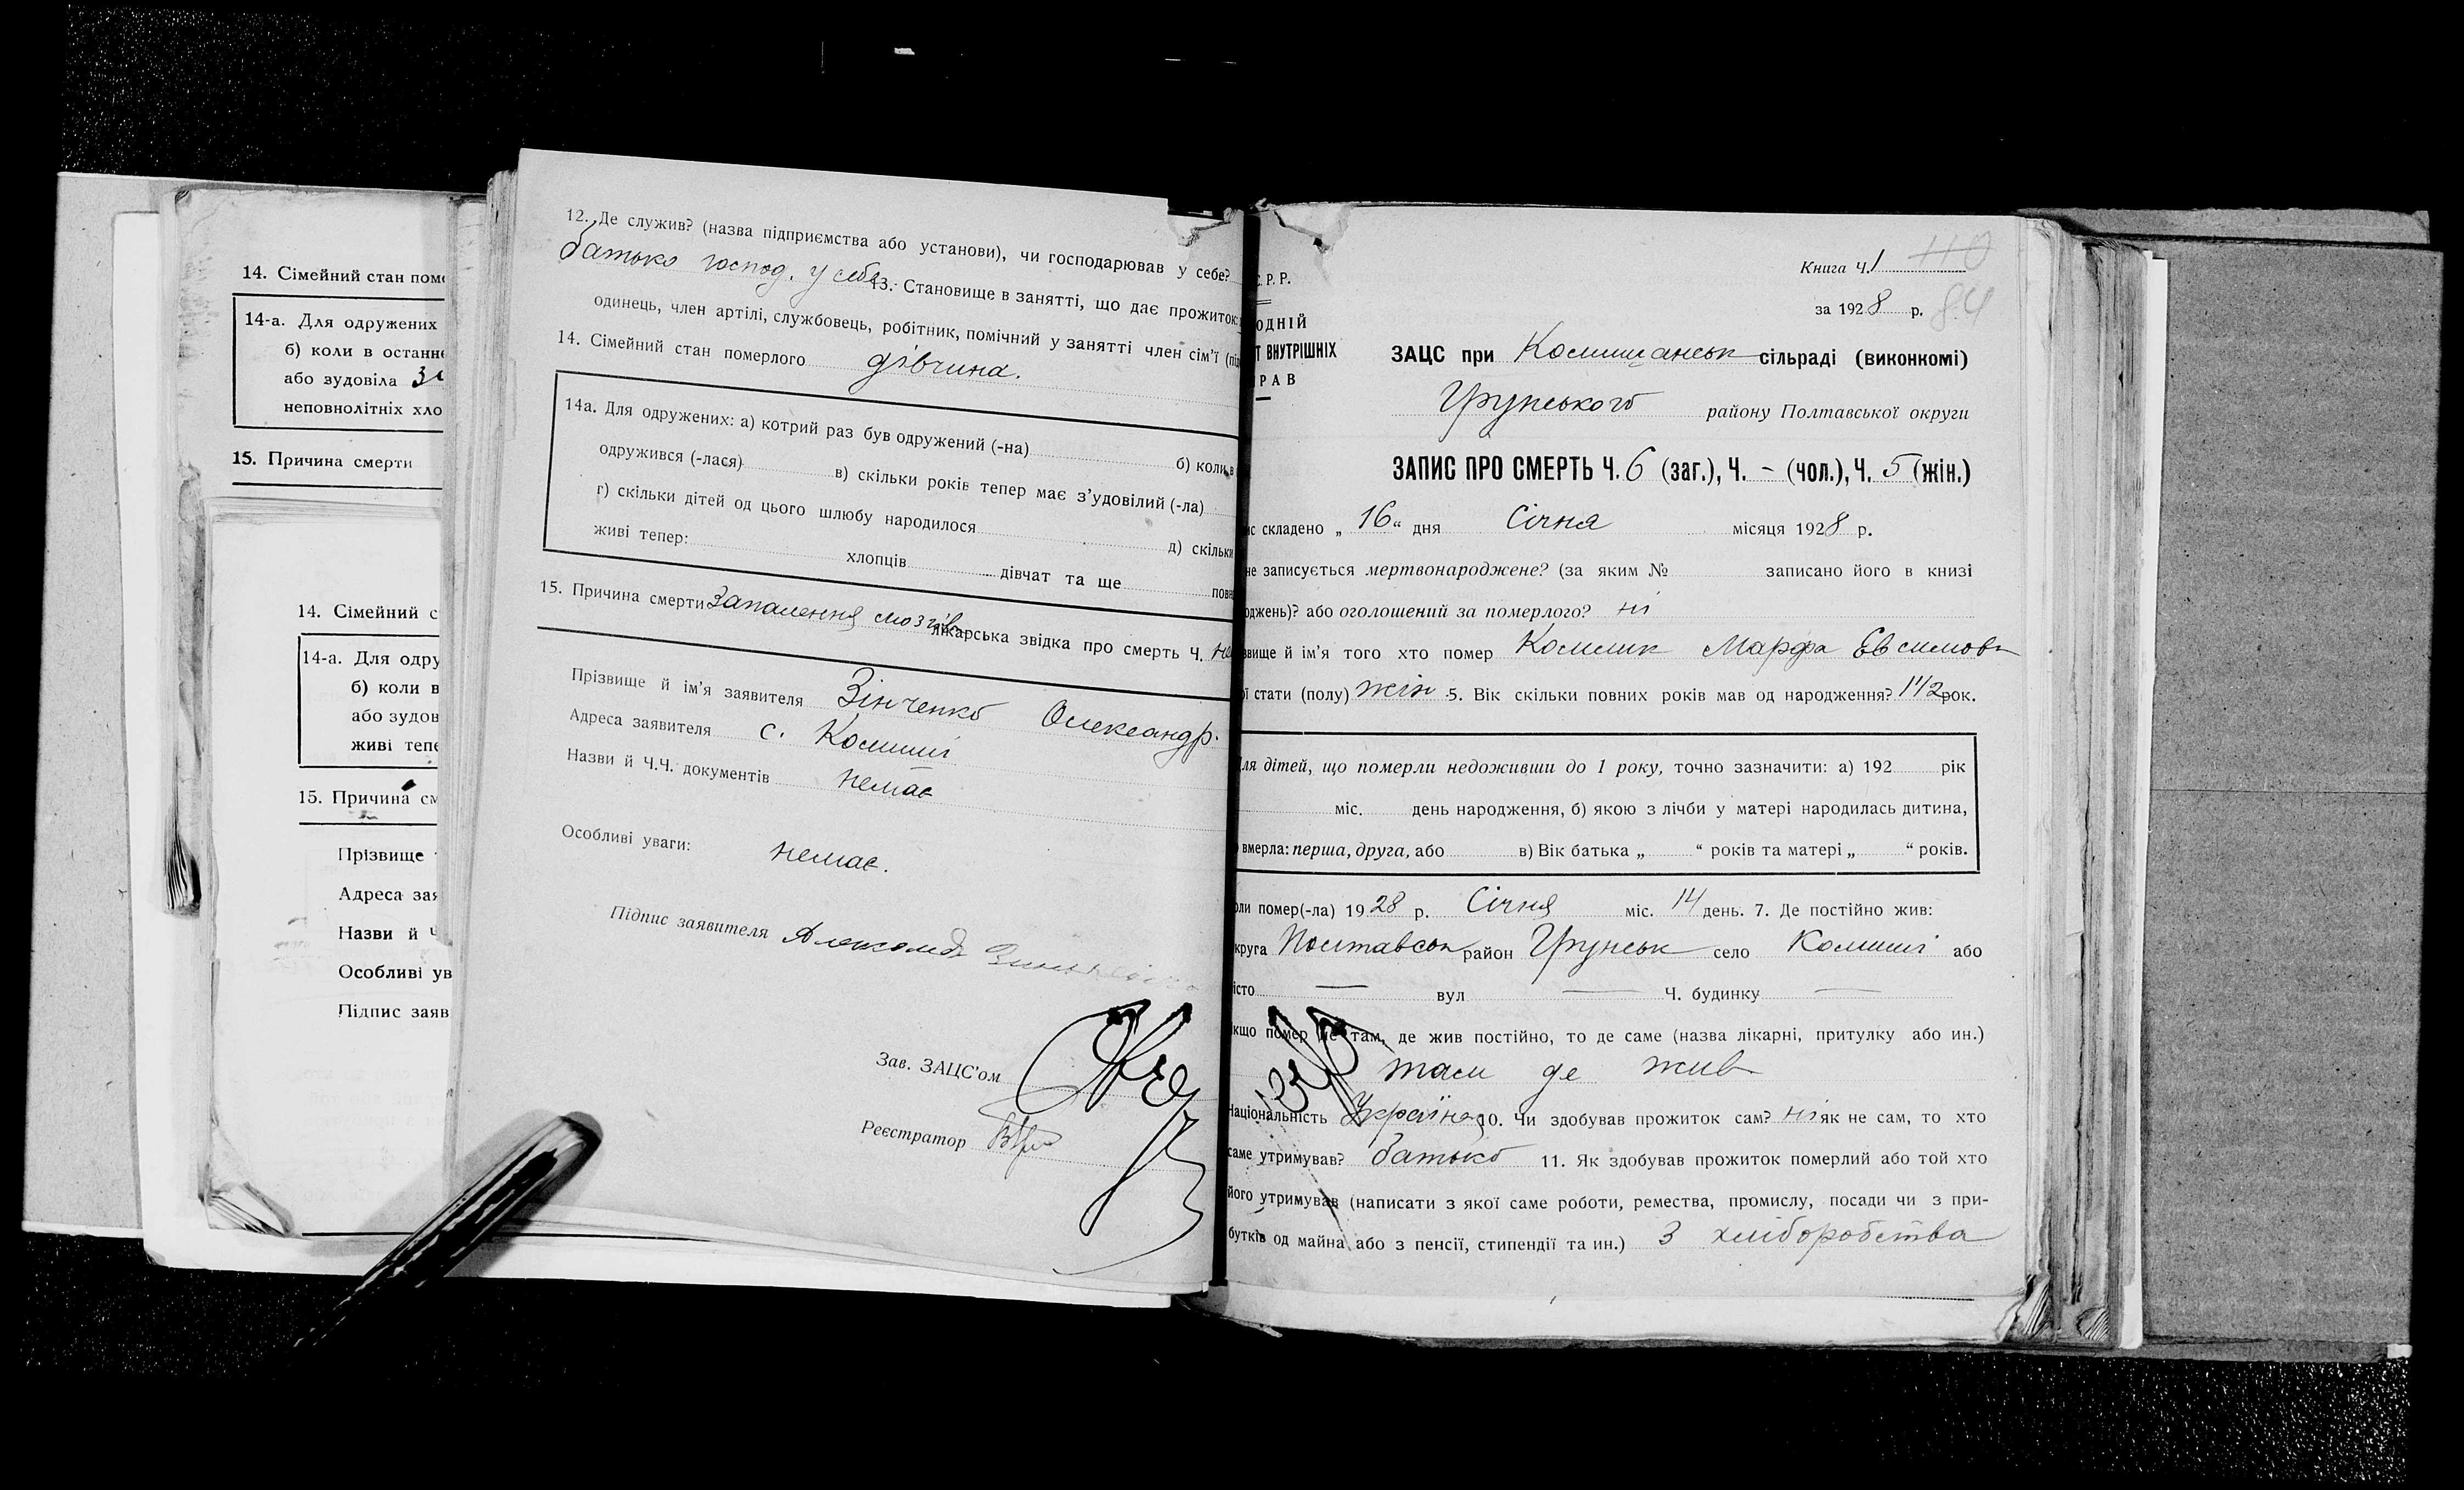 14. Сімейний стан поме
14-а. Для одружених
б) коли в останн
або зудовіла
неповнолітніх хло
15. Причина смерти
14. Сімейний с
14-а. Для одру
б) коли в
або зудов
живі тепе
15. Причина см
Прізвище
Адреса зая
Назви й Ч
Особливі ув
Підпис заяв
12. Де служив? (назва підприємства або установи), чи господарював у себе?
батько господ. у себе 13. Становище в занятті, що дає прожиток:
одинець, член артілі, службовець, робітник, помічний у занятті член сім’ї (під
14. Сімейний стан померлого дівчина.
14а. Для одружених: а) котрий раз був одружений (-на) б) коли в
одружився (-лася) в) скільки років тепер має з’удовілий (-ла)
г) скільки дітей од цього шлюбу народилося д) скільки
живі тепер: хлопців дівчат та ще повн
15. Причина смерти Запалення мозгів лікарська звідка про смерть Ч. не
Прізвище й ім’я заявителя Зінченко Олександр.
Адреса заявителя с. Комиші
Назви й Ч.Ч. документів немає
Особливі уваги: немає.
Підпис заявителя
Зав. ЗАЦС’ом
Реєстратор
С. Р. Р.
ОДНІЙ
Т ВНУТРІШНІХ
РАВ
Книга Ч. 1 110
за 1928 р. 84
ЗАЦС при Комишанськ сільраді (виконкомі)
Грунського району Полтавської округи
ЗАПИС ПРО СМЕРТЬ Ч. 6 (заг.), Ч. - (чол.), Ч. 5 (жін.)
ис складено „ 16 “ дня Січня місяця 1928 р.
не записується мертвонароджене? (за яким № записано його в книзі
оджень)? або оголошений за померлого? ні
звище й ім’я того хто помер Марфа Євсимовн
ої стати (полу) жін 5. Вік скільки повних років мав од народження? рок.
Для дітей, що померли недоживши до 1 року, точно зазначити: а) 192 рік
міс. день народження, б) якою з лічби у матері народилась дитина,
о вмерла: перша, друга, або в) Вік батька „ “ років та матері „ “ років.
оли помер(-ла) 1928 р. Січня міс. 14 день. 7. Де постійно жив:
круга Полтавськ район Грунськ село Комиші або
істо — вул — Ч. будинку —
кщо помер не там, де жив постійно, то де саме (назва лікарні, притулку або ин.)
там де жив
Національність Україн 10. Чи здобував прожиток сам? ні як не сам, то хто
саме утримував? батько 11. Як здобував прожиток померлий або той хто
його утримував (написати з якої саме роботи, ремества, промислу, посади чи з при-
бутків од майна або з пенсії, стипендії та ин.) З хліборобства